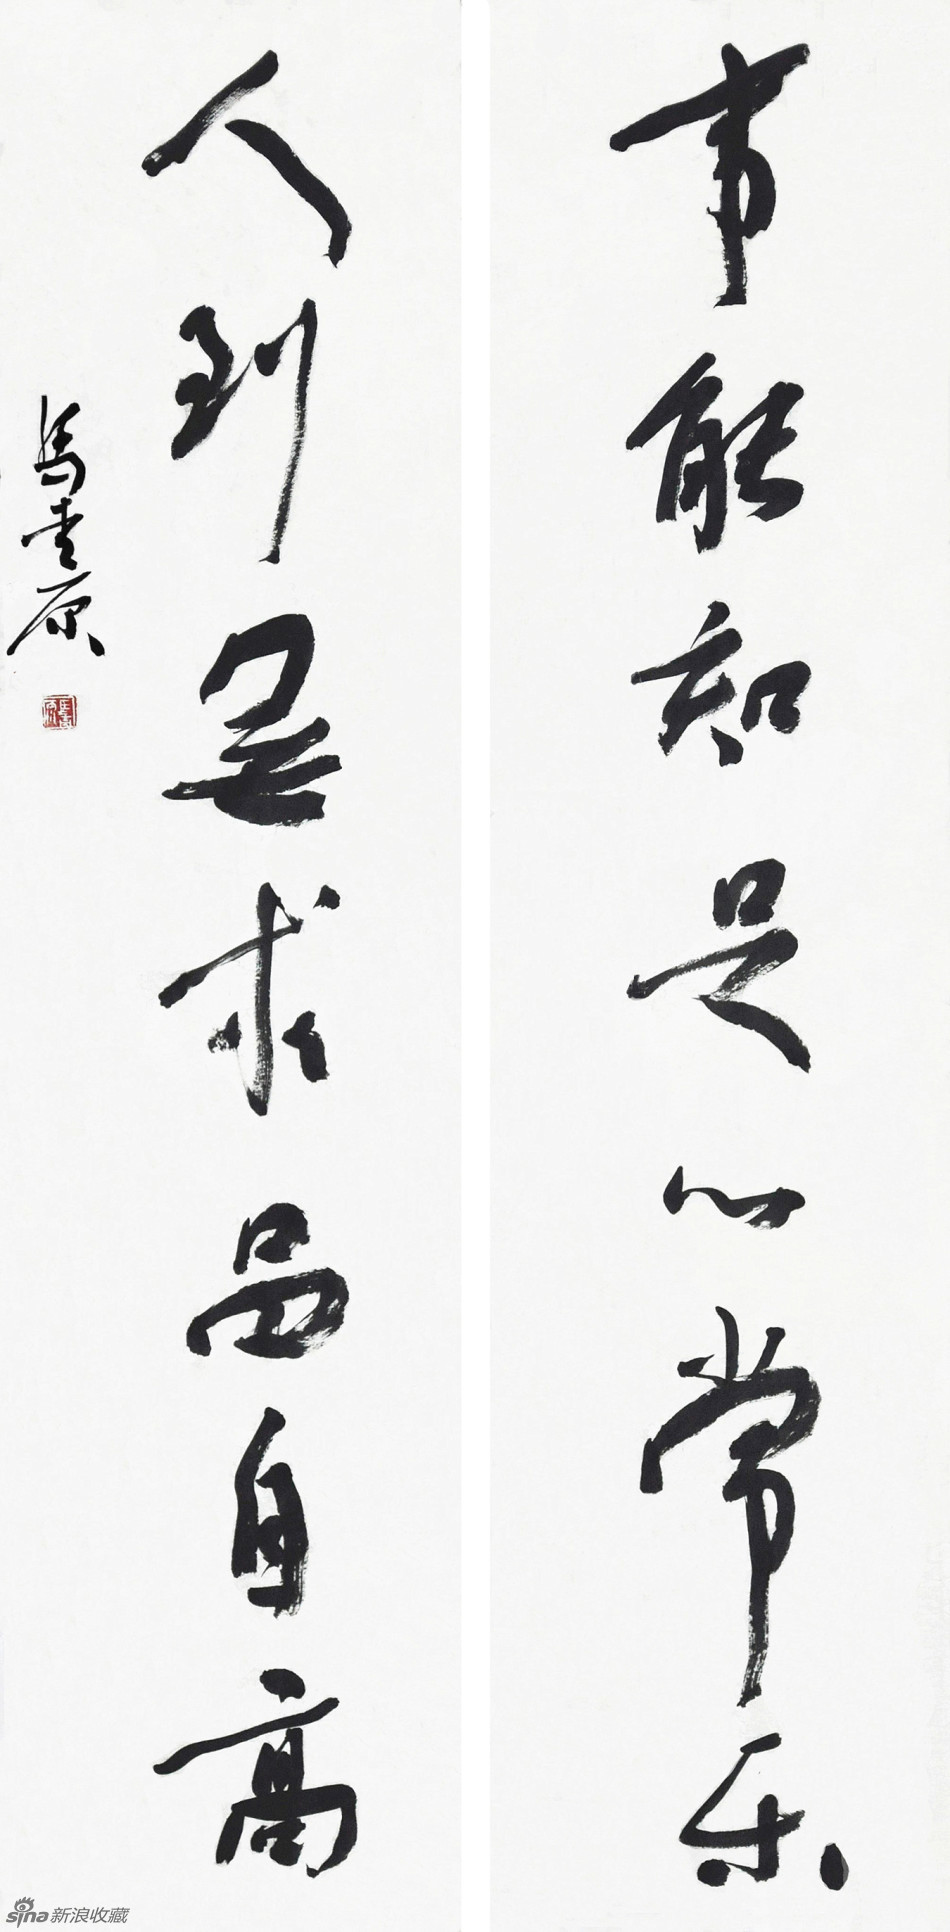 事能知足心常乐
人到無求品自高
sina新浪收藏